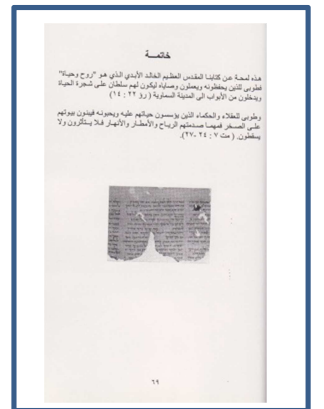 خاتمـــة
هذه لمحة عن كتابنا المقدس العظيم الخالد الأبدي الذي هو "روح وحياة"
فطوبى للذين يحفظونه ويعملون وصاياه ليكون لهم سلطان على شجرة الحياة
ويدخلون من الأبواب الى المدينة السماوية ( رؤ ٢٢ : ١٤)
وطوبى للعقلاء والحكماء الذين يؤسسون حياتهم عليه ويحبونه فيبنون بيوتهم
على الصخر فمهما صدمتهم الرياح والأمطار والأنهار فلا يتأثرون ولا
يسقطون. ( مت ٧ : ٢٤ -٢٧).
٦٩